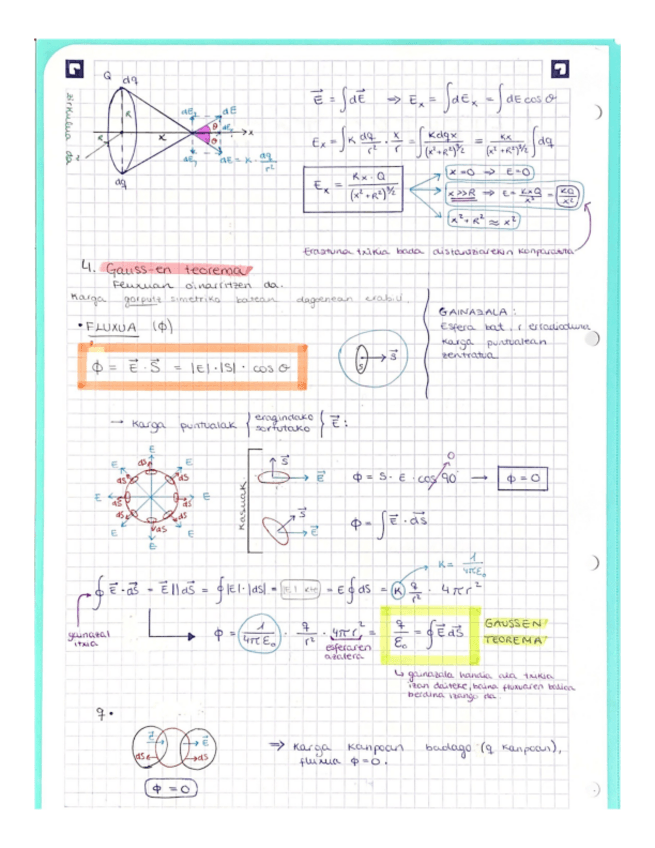 Q dq
zirkulua da
R
R
x
dE₂ dE
θ dEₓ
θ
x
dE₁ dE = K · dq/r²
dq
E⃗ = ∫dE⃗ ⇒ Eₓ = ∫dEₓ = ∫dE cos θ
Eₓ = ∫K dq/r² · x/r = ∫Kdqx/(x²+R²)^3/2 = Kx/(x²+R²)^3/2 ∫dq
Eₓ = Kx·Q/(x²+R²)^3/2
x=0 ⇒ E=0
x>>R ⇒ E = KxQ/x³ = KQ/x²
x²+R² ≈ x²
Eraztuna txikia bada distantziarekin konparatuta
4. Gauss-en teorema
Fluxuan oinarritzen da.
Karga gorputz simetriko batean dagoenean erabili.
• FLUXUA (ϕ)
ϕ = E⃗ · S⃗ = |E| · |S| · cos θ
S S⃗
GAINAZALA:
Esfera bat, r erradioduna
karga puntualean
zentratua
→ Karga puntualak { eragindako
sortutako } E⃗:
E E E E E E E E
dS dS dS dS dS dS dS dS
Kasuak
S⃗ E⃗
ϕ = S · E · cos 90 0 → ϕ = 0
S⃗ E⃗
ϕ = ∫E⃗ · dS⃗
K = 1/4πε₀
∮E⃗ · dS⃗ = E⃗ || dS⃗ = ∮|E|·|dS| = |E| kte = E∮dS = K q/r² · 4πr²
gainazal
itxia
ϕ = 1/4πε₀ · q/r² · 4πr² = q/ε₀ = ∮E⃗ dS⃗
esferaren
azalera
GAUSSEN
TEOREMA
↳ gainazala handia ala txikia
izan daiteke, baina fluxuaren balioa
berdina izango da.
q •
E⃗ E⃗
dS dS
ϕ = 0
⇒ Karga kanpoan badago (q kanpoan),
fluxua ϕ=0.